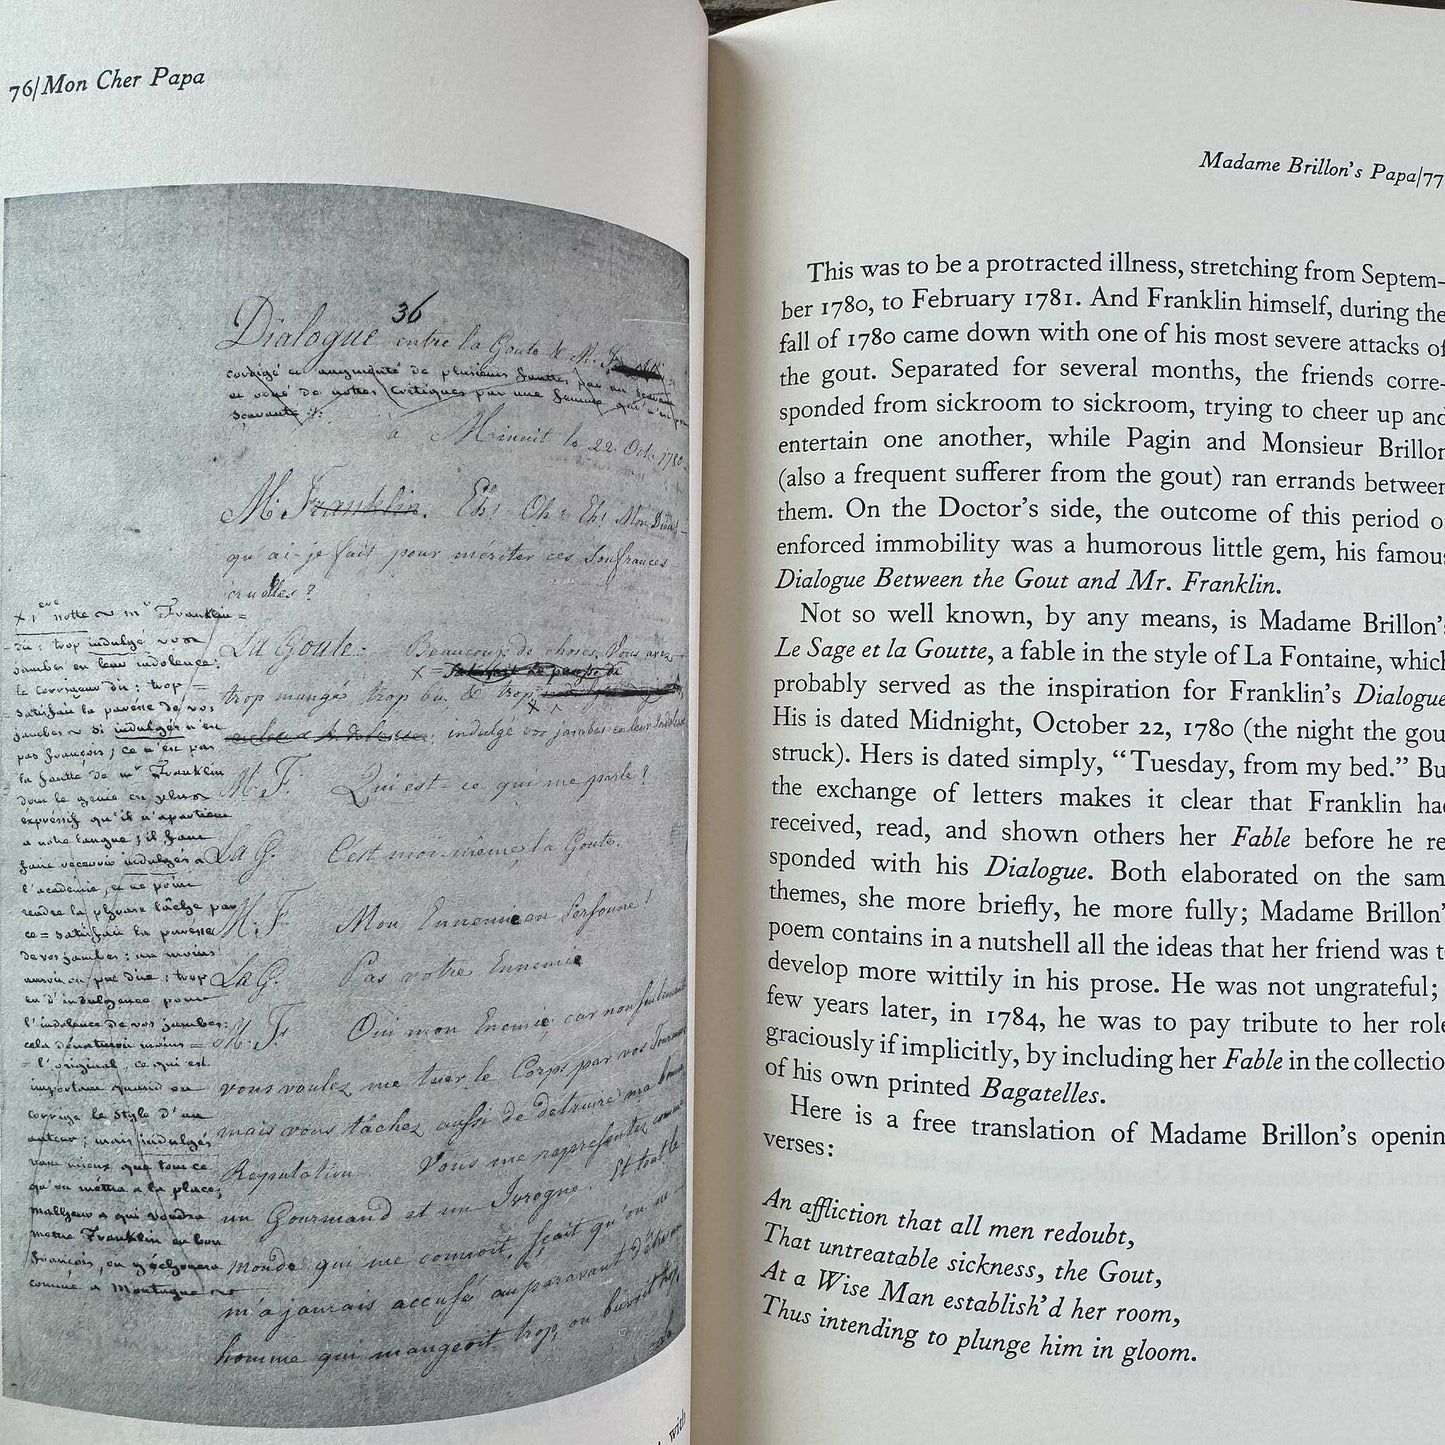 76/Mon Cher Papa
36
Dialogue entre la Goute & M.
corrigé et augmenté de plusieurs fauttes, par un
et orné de nottes critiques par une femme qui n'est
sçavante
à Minuit le 22 Oct. 1780
M. Franklin. Eh! Oh! Eh! Mon Dieu!
qu'ai-je fait pour mériter ces Soufrances
cruelles?
La Goute. Beaucoup de choses. Vous avez
trop mangé trop bu & trop
indulgé vos jambes en leur Indolence
M. F. Qui est-ce qui me parle?
La G. C'est moi-même la Goute.
M. F. Mon Ennemie en Personne!
La G. Pas votre Ennemie
M. F. Oui mon Enemie, car non seulement
vous voulez me tuer le Corps par vos Tourmens
mais vous tâchez aussi de detruire ma bonne
Reputation. Vous me representez comme
un Gourmand et un Ivrogne. Et tout le
monde qui me connoit, sçait qu'on ne
m'a jamais accusé auparavant d'être un
homme qui mangeoit trop, ou buvoit trop
x 1ere notte ~ mr Franklin =
dit: trop indulgé vos
jambes en leur indolence:
le corrigeur dit: trop =
satisfait la paresse de vos
jambes ~ si indulgér n'est
pas françois; ce n'est pas
la fautte de mr Franklin
dont le génie est plus
expréssif qu'il n'apartient
a notre langue; il faut
faire recevoir indulgér a
l'academie, et ne point
rendre la phrase lâche par
ce = satisfait la paresse
de vos jambes: au moins
auroit on pu dire: trop
eu d'indulgence pour
l'indolence de vos jambes:
cela dénaturoit moins =
= l'original, ce qui est
important quand on
corrige le style d'un
auteur; mais indulgér
vaut mieux que tout ce
qu'on mettra a la place;
malheur a qui voudra
mettre Franklin en bon
françois, on y échouera
comme a Montagne
with
Madame Brillon's Papa/77
This was to be a protracted illness, stretching from Septem-
ber 1780, to February 1781. And Franklin himself, during the
fall of 1780 came down with one of his most severe attacks of
the gout. Separated for several months, the friends corre-
sponded from sickroom to sickroom, trying to cheer up and
entertain one another, while Pagin and Monsieur Brillon
(also a frequent sufferer from the gout) ran errands between
them. On the Doctor's side, the outcome of this period o
enforced immobility was a humorous little gem, his famous
Dialogue Between the Gout and Mr. Franklin.
Not so well known, by any means, is Madame Brillon's
Le Sage et la Goutte, a fable in the style of La Fontaine, which
probably served as the inspiration for Franklin's Dialogue
His is dated Midnight, October 22, 1780 (the night the gou
struck). Hers is dated simply, "Tuesday, from my bed." Bu
the exchange of letters makes it clear that Franklin had
received, read, and shown others her Fable before he re
sponded with his Dialogue. Both elaborated on the sam
themes, she more briefly, he more fully; Madame Brillon'
poem contains in a nutshell all the ideas that her friend was t
develop more wittily in his prose. He was not ungrateful;
few years later, in 1784, he was to pay tribute to her role
graciously if implicitly, by including her Fable in the collectio
of his own printed Bagatelles.
Here is a free translation of Madame Brillon's openin
verses:
An affliction that all men redoubt,
That untreatable sickness, the Gout,
At a Wise Man establish'd her room,
Thus intending to plunge him in gloom.